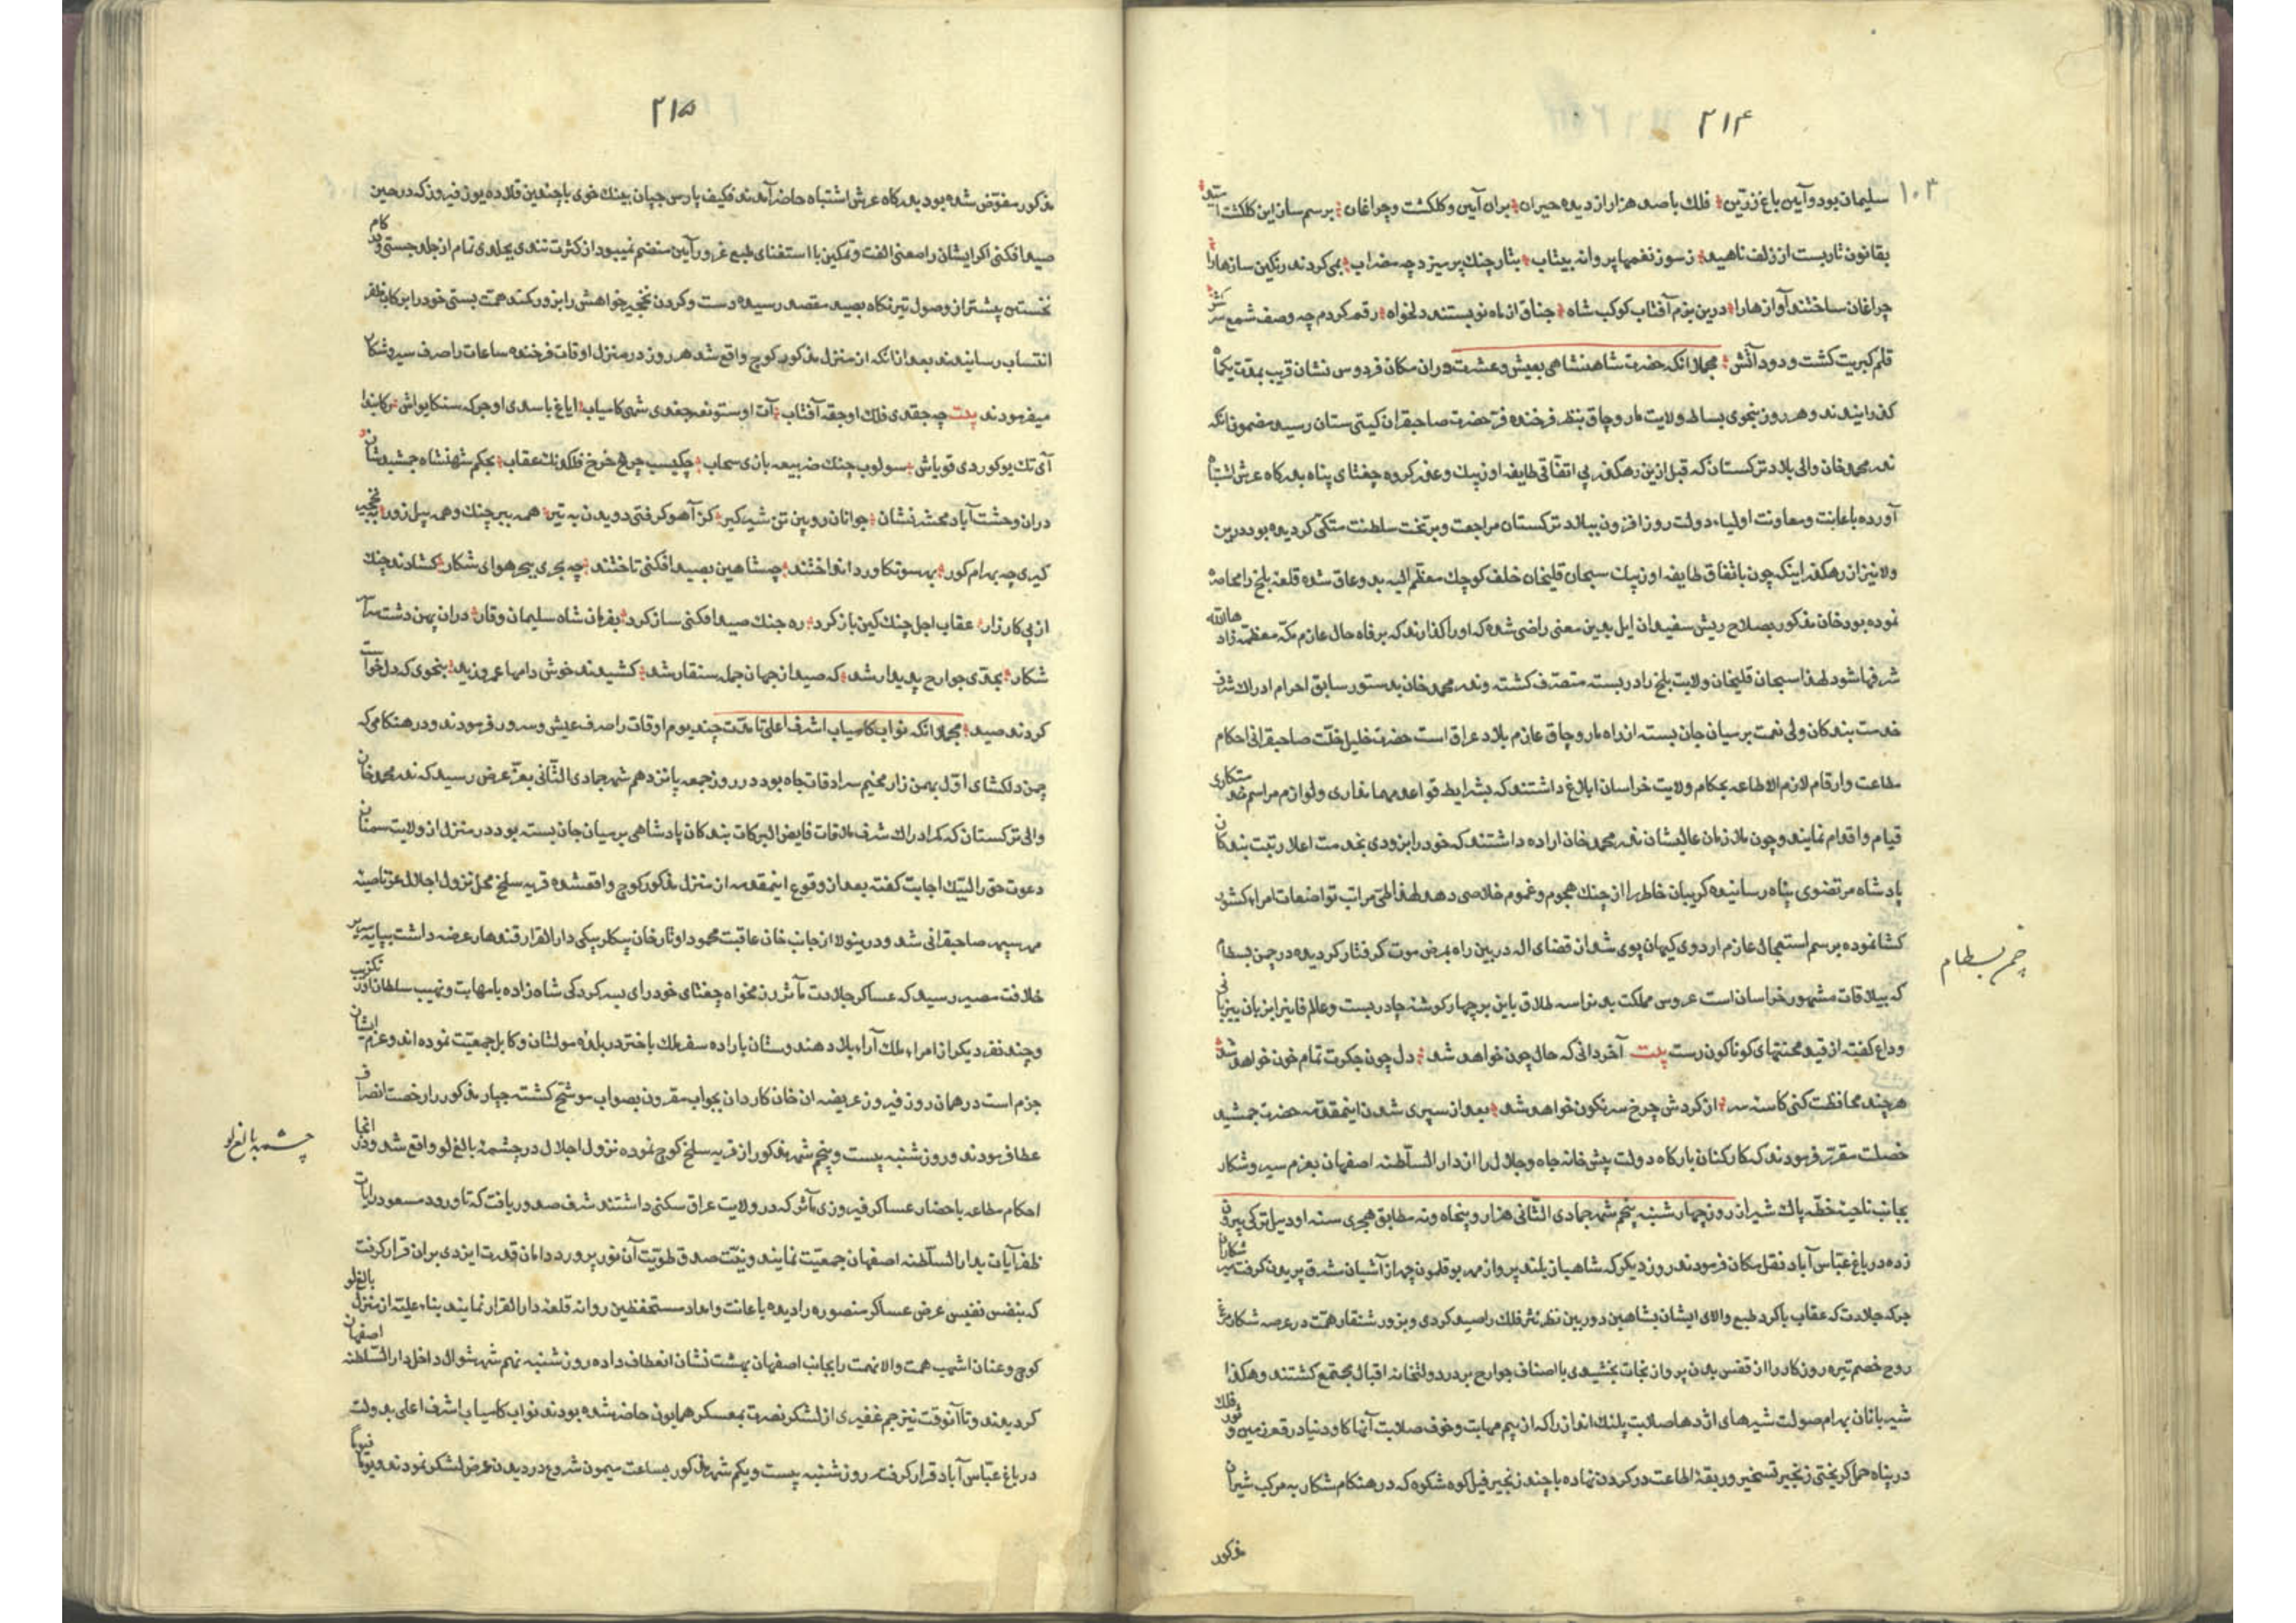 ۲۱۴
۱۰۳
سلیمان بود و آیین باغ زرین فلک با صد هزاران دیده حیران بران آیین و کلکشت و چراغان برسم سان این کلکشت
بقانون تار بست از زلف ناهید ز سوز نغمها پروانه بیتاب بتار چنک بر میزد چه مضراب نمی کردند رنکین سازها را
چراغان ساختند آوازها را درین بزم آفتاب کوکب شاه جناق از ماه نو بستند دلخواه رقم کردم چه وصف شمع
قلم کبریت کشت و دود آتش مجملا انکه حضرت شاهنشاهی بعیش و عشرت دران مکان فردوس نشان قریب بمدت یکماه
کذرانیدند و هر روز بنحوی بساط ولایت مار و چاق بنظر فرخنده فر حضرت صاحبقران کیتی ستان رسید مضمون انکه
ندر محمد خان والی بلاد ترکستان که قبل ازین رهکذر بی اتفاقی طایفه اوزبک و عذر کروه چغتای پناه بدرکاه عرش اشتباه
آورده باعانت و معاونت اولیاء دولت روز افزون ببلاد ترکستان مراجعت و بر تخت سلطنت متکی کردیده بود درین
ولا نیز از رهکذر اینکه چون باتفاق طایفه اوزبک سبحان قلیخان خلف کوچک معظم الیه بد و عاق شده قلعه بلخ را محاصره
نموده بود خان مذکور بصلاح ریش سفیدان ایل بدین معنی راضی شده که او را کذارند که برفاه حال عازم مکه معظمه زاد
شرفها شود لهذا سبحان قلیخان ولایت بلخ را در بسته متصرف کشته و ندر محمد خان بدستور سابق احرام ادراک شرف
خدمت بندکان ولی نعمت بر میان جان بسته از راه مار و چاق عازم بلاد عراق است حضرت خلیل خلت صاحبقرانی احکام
مطاعت و ارقام لازم الاطاعه بحکام ولایت خراسان ابلاغ داشتند که بشرایط قواعد مهمانداری و لوازم مراسم خدمتکاری
قیام و اقدام نمایند و چون ملازمان عالیشان ندر محمد خان اراده داشتند که خود را بزودی بخدمت اعلا رتبت بندکان
پادشاه مرتضوی پناه رسانیده کریبان خاطر را از چنک هجوم و غموم خلاصی دهد لهذا طی مراتب تواضعات امراء کشور
کشا نموده برسم استعجال عازم اردوی کیهان پوی شد از قضای اله در بین راه بمرض موت کرفتار کردیده در چمن بسطام
که ییلاقات مشهور خراسان است عروس مملکت بد نواسه طلاق باین بر چهار کوشه چادر بست و علام فانی را بزبان
وداع کفته از قید محنتهای کوناکون رست بیت آخر دانی که حال چون خواهد شد دل چون جکرت تمام خون خواهد شد
هر چند محافظت کنی کاسه سر از کردش چرخ سرنکون خواهد شد بعد از سپری شدن اینمقدمه حضرت جمشید
خصلت مقرر فرمودند که کارکنان بارکاه دولت پیش خانه جاه و جلال را از دار السلطنه اصفهان بعزم سیر و شکار
بجانب ناحیت خطه پاک شیراز روز چهار شنبه پنجم شهر جمادی الثانی هزار و پنجاه و نه مطابق هجری سنه اودییل ترکی بیرون
زده در باغ عباس آباد نقل مکان فرمودند روز دیکر که شاهباز بلند پرواز مهر بوقلمون چهر از آشیان شرق پریدن کرفت میرشکاران
جرکه جلادت که عقاب باکرد طبع والای ایشان بشاهین دوربین نظر نثر فلک را صید کردی و بزور شنقار همت در عرصه شکار
روح خصم تیره روزکار را از قفس بدن پرواز نجات بخشیدی با اصناف جوارح بر در دولتخانه اقبال مجتمع کشتند و هکذا
شیربانان بهرام صولت شیرهای اژدها صلابت پلنک انداز را که از بیم مهابت و خوف صلابت آنها کاو دنیا در قعر زمین و ثور فلک
در پناه حمل کریختی زنجیر تسخیر و ربقه اطاعت در کردن نهاده با چند زنجیر فیل کوه شکوه که در هنکام شکار به مرکب شیران
مذکور
چمن بسطام
۲۱۵
مذکور مفوض شده بود بدرکاه عرش اشتباه حاضر آمدند فکیف پارس جیان پینک خوی با چندین قلاده یوز فیروز که در حین
صید افکنی اکر ایشان را معنی الفت و تمکین با استغنای طبع غرور آیین منضم نمیبود از کثرت تندی بجلدی تمام از جلد جستی و در کام
نخستین پیشتر از وصول تیر نکاه بصید مقصد رسیده دست و کردن نخجیر خواهش را بزور کمند همت بستی خود را برکاب ظفر
انتساب رسانیدند بعد از انکه از منزل مذکور کوچ واقع شد هر روز در منزل اوقات فرخنده ساعات را صرف سیر و شکار
میفرمودند بیت چه جقه ی فلک اوجقه آفتاب
از پی کارزار عقاب اجل چنک کین باز کرد ره جنک صید افکنی ساز کرد بفرمان شاه سلیمان وقار دران پهن دشت
شکار بحدی جوارح پدیدار شد که صید از جهان جمله سنقار شد کشیدند خوش دامها عمرو زید بنحوی که دلخواست
کردند صید مجملا انکه نواب کامیاب اشرف اعلی تا مدت چند یوم اوقات را صرف عیش و سرور فرمودند و در هنکامی که
چمن دلکشای اول بهمن زار مخیم سرادقات جاه بود در روز جمعه پانزدهم شهر جمادی الثانی بعز عرض رسید که ندر محمد خان
والی ترکستان که کمر ادراک شرف ملاقات فایض البرکات بندکان پادشاهی بر میان جان بسته بود در منزل از ولایت سمنان
دعوت حق را لبیک اجابت کفته بعد از وقوع اینمقدمه از منزل مذکور کوچ واقعشده قریه سلخ محل نزول اجلال عز ناصیه
مهر سپهر صاحبقرانی شد و درینولا از جانب خان عاقبت محمود اوتار خان بیکلربیکی دار القرار قندهار عرضه داشت بپایه سریر
خلافت مصیر رسید که عساکر جلادت مآثر رزمخواه چغتای خود رای بسرکردکی شاه زاده با مهابت و نهیب سلطان اورنکزیب
و چند نفر دیکر از امراء ملک آراء بلاد هندوستان باراده سفر ملک باختر در بلده مولتان و کابل جمعیت نموده اند و عزم ایشان
جزم است در همان روز فیروز عریضه ان خان کاردان بجواب مقرون بصواب موشح کشته چپار مذکور را رخصت انصراف
عطا فرمودند و روز شنبه بیست و پنجم شهر مذکور از قریه سلخ کوچ نموده نزول اجلال در چشمه بالغ لو واقع شد و در انجا
احکام مطاعه باحضار عساکر فیروزی مآثر که در ولایت عراق سکنی داشتند شرف صدور یافت که تا ورود مسعود رایات
ظفر آیات بدار السلطنه اصفهان جمعیت نمایند و نیت صدق طویت آن نور پرورد دامان قدرت ایزدی بران قرار کرفت
که بنفس نفیس عرض عساکر منصوره را دیده باعانت و امداد مستحفظین روانه قلعه دار القرار نمایند بناء علیه از منزل بالغ لو
کوچ و عنان اشهب همت والا نهمت را بجانب اصفهان بهشت نشان انعطاف داده روز شنبه نهم شهر شوال داخل دار السلطنه اصفهان
کردیدند و تا آنوقت نیز جم غفیری از لشکر نصرت بمعسکر همایون حاضر شده بودند نواب کامیاب اشرف اعلی بدولت
در باغ عباس آباد قرار کرفته روز شنبه بیست و یکم شهر مذکور بساعت میمون شروع در دیدن عرض لشکر نمودند و یوما فیوما
چشمه بالغ لو